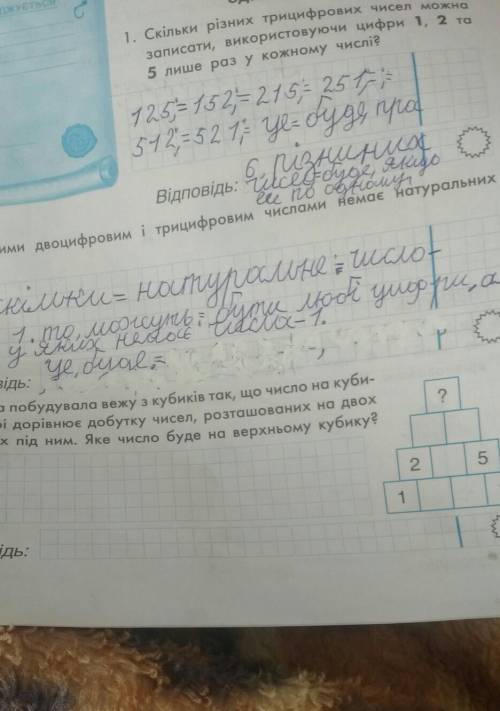 1. Скільки різних трицифрових чисел можна
записати, використовуючи цифри 1, 2 та
5 лише раз у кожному числі?
125;= 152;= 215;= 251;=
512;= 521;= це= буде пра
6, різничних
Відповідь: чисел=буде, якщо
є по одному
ими двоцифровим і трицифровим числами немає натуральних
= натуральне = число-
1. то, можуть: бути любі цифри, а
у яких немає числа- 1.
це, буде =
відь:
а побудувала вежу з кубиків так, що число на куби-
рі дорівнює добутку чисел, розташованих на двох
х під ним. Яке число буде на верхньому кубику?
?
2 5
1
відь: